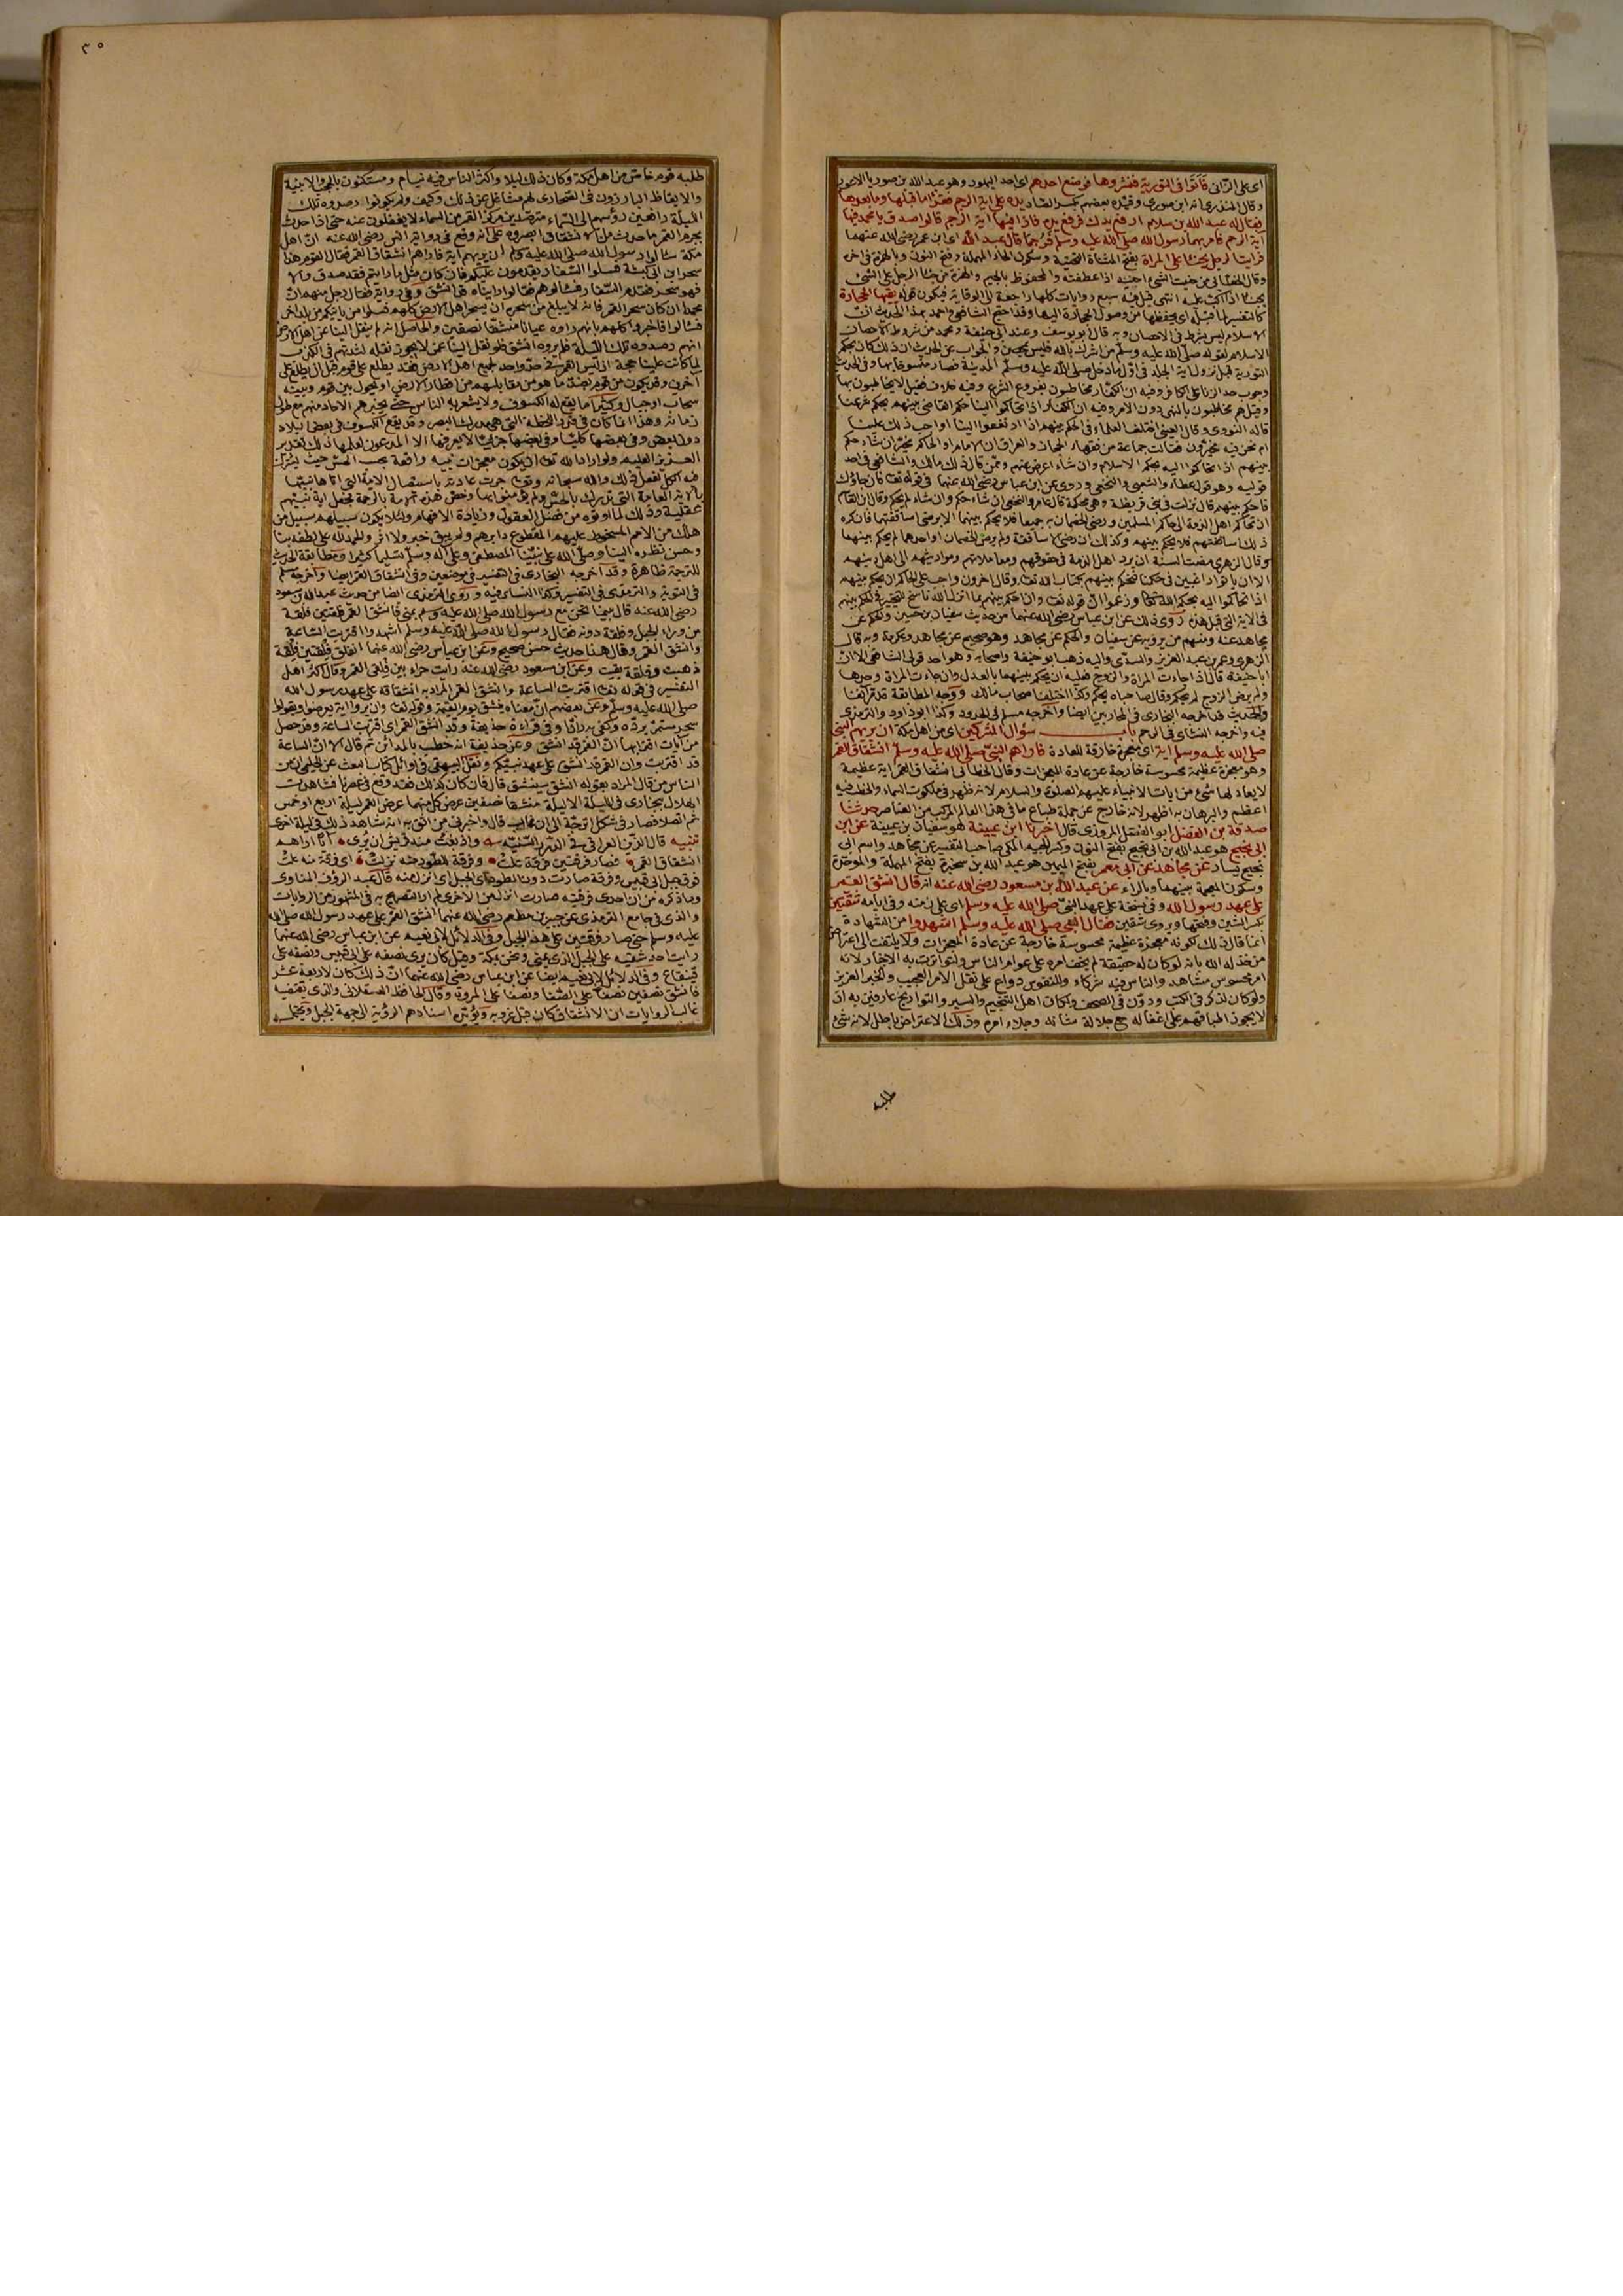 اى على الزانى فاتوا فى التورية فنشروها فوضع احدهم اى احد اليهود وهو عبد الله بن صوريا الاعور
وقال المنذرى انه ابن صورى وقيده بعضهم بكسر الصاد يده على اية الرجم فقرأ ما قبلها وما بعدها
فقال له عبد الله بن سلام ارفع يدك فرفع يده فاذا فيها اية الرجم قالوا صدق يا محمد فيها
اية الرجم فامر بهما رسول الله صلى الله عليه وسلم فرجما قال عبد الله اى ابن عمر رضى الله عنهما
فرايت الرجل يحنأ على المراة بفتح المثناة التحتية وسكون الحاء المهملة وفتح النون وبالهمزة فى اخره
وقال الخطابى من حنيت الشئ احنيه اذا عطفته والمحفوظ بالجيم والهمزة من جنأ الرجل على الشئ
يجنأ اذا اكب عليه انتهى قيل فيه سبع روايات كلها راجعة الى الوقاية فيكون قوله يقيها الحجارة
كالتفسير لما قبله اى يحفظها من وصول الحجارة اليها وقد احتج الشافعى واحمد بهذا الحديث ان
الاسلام ليس بشرط فى الاحصان وبه قال ابو يوسف وعند ابى حنيفة ومحمد من شروط الاحصان
الاسلام لقوله صلى الله عليه وسلم من اشرك بالله فليس بمحصن والجواب عن الحديث ان ذلك كان بحكم
التورية قبل نزول اية الجلد فى اول ما دخل صلى الله عليه وسلم المدينة فصار منسوخا بها وفى الحديث
وجوب حد الزنا على الكافر وفيه ان الكفار مخاطبون بفروع الشرع وفيه خلاف فقيل لا يخاطبون بها
وقيل هم مخاطبون بالنهى دون الامر وفيه ان الكفار اذا تحاكموا الينا حكم القاضى بينهم بحكم شرعنا
قاله النووى وقال العينى اختلف العلماء فى الحكم بينهم اذا ارتفعوا الينا اواجب ذلك علينا
ام نحن فيه مخيرون فقالت جماعة من فقهاء الحجاز والعراق ان الامام او الحاكم مخير ان شاء حكم
بينهم اذا تحاكموا اليه بحكم الاسلام وان شاء اعرض عنهم وممن قال ذلك مالك والشافعى فى احد
قوليه وهو قول عطاء والشعبى والنخعى وروى عن ابن عباس رضى الله عنهما فى قوله تعا فان جاؤك
فاحكم بينهم قال نزلت فى بنى قريظة وهى محكمة قال عامر والنخعى ان شاء حكم وان شاء لم يحكم وقال ابن القاسم
ان تحاكم اهل الذمة الى حاكم المسلمين ورضى الخصمان به جميعا فلا يحكم بينهما الا برضى اساقفتهما فان كره
ذلك اساقفتهم فلا يحكم بينهم وكذلك ان رضى الاساقفة ولم يرض الخصمان او احدهما لم يحكم بينهما
وقال الزهرى مضت السنة ان يرد اهل الذمة فى حقوقهم ومعاملاتهم ومواريثهم الى اهل دينهم
الا ان ياتوا راغبين فى حكمنا فنحكم بينهم بكتاب الله تعا وقال اخرون واجب على الحاكم ان يحكم بينهم
اذا تحاكموا اليه بحكم الله تعا وزعموا ان قوله تعا وان احكم بينهم بما انزل الله ناسخ للتخيير فى الحكم بينهم
فى الاية التى قبل هذه روى ذلك عن ابن عباس رضى الله عنهما من حديث سفيان بن حسين والحكم عن
مجاهد عنه ومنهم من يرويه عن سفيان والحكم عن مجاهد وهو صحيح عن مجاهد وعكرمة وبه قال
الزهرى وعمر بن عبد العزيز والسدى واليه ذهب ابو حنيفة واصحابه وهو احد قولى الشافعى الا ان
ابا حنيفة قال اذا جاءت المراة والزوج فعليه ان يحكم بينهما بالعدل وان جاءت المراة وحدها
ولم يرض الزوج لم يحكم وقال صاحباه يحكم وكذا اختلف اصحاب مالك ووجه المطابقة قد مر انفا
والحديث قد اخرجه البخارى فى المحاربين ايضا واخرجه مسلم فى الحدود وكذا ابو داود والترمذى
فيه واخرجه النسائى فى الرجم باب سؤال المشركين اى من اهل مكة ان يريهم النبى
صلى الله عليه وسلم اية اى معجزة خارقة للعادة فاراهم النبى صلى الله عليه وسلم انشقاق القمر
وهو معجزة عظيمة محسوسة خارجة عن عادة المعجزات وقال الخطابى انشقاق القمر اية عظيمة
لا يعادلها شئ من ايات الانبياء عليهم الصلوة والسلام لانه ظهر فى ملكوت السماء والخطب فيه
اعظم والبرهان به اظهر لانه خارج عن جملة طباع ما فى هذا العالم المركب من العناصر حدثنا
صدقة بن الفضل ابو الفضل المروزى قال اخبرنا ابن عيينة هو سفيان بن عيينة عن ابن
ابى نجيح هو عبد الله بن ابى نجيح بفتح النون وكسر الجيم المكى صاحب التفسير عن مجاهد واسم ابى
نجيح يسار عن مجاهد عن ابى معمر بفتح الميمين هو عبد الله بن سخبرة بفتح المهملة والموحدة
وسكون المعجمة بينهما وبالراء عن عبد الله بن مسعود رضى الله عنه انه قال انشق القمر
على عهد رسول الله وفى نسخة على عهد النبى صلى الله عليه وسلم اى على زمنه وفى ايامه شقتين
بكسر الشين وفتحها ويروى شقين فقال النبى صلى الله عليه وسلم اشهدوا من الشهادة
انما قال ذلك لكونه معجزة عظيمة محسوسة خارجة عن عادة المعجزات ولا يلتفت الى اعتراض
من خذله الله بانه لو كان له حقيقة لم يخف امره على عوام الناس ولتواترت به الاخبار لانه
امر محسوس مشاهد والناس فيه شركاء وللنفوس دواع على نقل الامر العجيب والخبر العزيز
ولو كان لذكر فى الكتب ودون فى الصحف ولكان اهل التنجيم والسير والتواريخ عارفين به اذ
لا يجوز اطباقهم على اغفاله مع جلالة شانه وجلاء امره وذلك الاعتراض باطل لانه شئ
طلبه
٣٥
طلبه قوم خاص من اهل مكة وكان ذلك ليلا واكثر الناس فيه نيام ومستكنون بالحجب والابنية
والايقاظ البارزون فى الصحارى لهم مشاغل عن ذلك وكيف ولم يكونوا رصدوه تلك
الليلة رافعين رؤسهم الى السماء مترصدين مركز القمر من السماء لا يغفلون عنه حتى اذا حدث
بجرم القمر ما حدث من الانشقاق ابصروه على انه وقع فى رواية انس رضى الله عنه ان اهل
مكة سالوا رسول الله صلى الله عليه وسلم ان يريهم اية فاراهم انشقاق القمر فقال القوم هذا
سحر ابن ابى كبشة فسلوا السفار يقدمون عليكم فان كان مثل ما رايتم فقد صدق والا
فهو سحر فقدم السفار فسالوهم فقالوا رايناه قد انشق وفى رواية فقال رجل منهم ان
محمدا ان كان سحر القمر فانه لا يبلغ من سحره ان يسحر اهل الارض كلهم فسلوا من ياتيكم من بلد اخر
فسالوا فاخبروا كلهم بانهم راوه عيانا منشقا نصفين والحاصل انه لم ينقل الينا عن اهل الارض
انهم رصدوه تلك الليلة فلم يروه انشق فلو نقل الينا عمن لا يجوز نقله لشدتهم فى الكذب
لما كانت علينا حجة اذ ليس القمر فى حد واحد لجميع اهل الارض فقد يطلع على قوم قبل ان يطلع على
اخرين وقد يكون من قوم بضد ما هو من مقابلهم من اقطار الارض او يحول بين قوم وبينه
سحاب او جبال وكثيرا ما يقع له الكسوف ولا يشعر به الناس حتى يخبرهم الاحاد منهم مع طول
زمانه وهذا انما كان فى قدر اللحظة التى هى مدرك البصر وقد يقع الكسوف فى بعض البلاد
دون بعض وفى بعضها كليا وفى بعضها جزئيا لا يعرفها الا المدعون لعلمها ذلك تقدير
العزيز العليم ولو اراد الله تعا ان يكون معجزات نبيه واقعة بحسب الحس حيث يشترك
فيه الكل لفعل ذلك والله سبحانه وتعا جرت عادته باستئصال الامة التى اتاها نبيها
بالاية العامة التى تدرك بالحس ولم يؤمنوا بها وخص هذه الامة بالرحمة فجعل اية نبيهم
عقلية وذلك لما اوتوه من فضل العقول وزيادة الافهام ولئلا يكون سبيلهم سبيل من
هلك من الامم المسخوط عليهم المقطوع دابرهم ولم يبق خبر ولا اثر والحمد لله على لطفه بنا
وحسن نظره الينا وصلى الله على نبينا المصطفى وعلى اله وسلم تسليما كثيرا ومطابقة الحديث
للترجمة ظاهرة وقد اخرجه البخارى فى التفسير فى موضعين وفى انشقاق القمر ايضا واخرجه مسلم
فى التوبة والترمذى فى التفسير وكذا النسائى فيه وروى الترمذى ايضا من حديث عبد الله بن مسعود
رضى الله عنه قال بينما نحن مع رسول الله صلى الله عليه وسلم بمنى فانشق القمر فلقتين فلقة
من وراء الجبل وفلقة دونه فقال رسول الله صلى الله عليه وسلم اشهدوا اقتربت الساعة
وانشق القمر وقال هذا حديث حسن صحيح وعن ابن عباس رضى الله عنهما انفلق فلقتين فلقة
ذهبت وفلقة بقيت وعن ابن مسعود رضى الله عنه رايت حراء بين فلقتى القمر وقال اكثر اهل
التفسير فى قوله تعا اقتربت الساعة وانشق القمر المراد به انشقاقه على عهد رسول الله
صلى الله عليه وسلم وعن بعضهم ان معناه ينشق يوم القيمة وقوله تعا وان يروا اية يعرضوا ويقولوا
سحر مستمر يرده وكفى به رادا وفى قراءة حذيفة وقد انشق القمر اى اقتربت الساعة وقد حصل
من ايات اقترابها ان القمر قد انشق وعن حذيفة انه خطب بالمدائن ثم قال الا ان الساعة
قد اقتربت وان القمر قد انشق على عهد نبيكم ونقل البيهقى فى اوائل كتاب البعث عن الحليمى ان من
الناس من قال المراد بقوله انشق سينشق قال فان كان كذلك فقد وقع فى عصرنا فشاهدت
الهلال ببخارى فى الليلة الاليلة منشقا نصفين عرض كل منهما عرض القمر ليلة اربع او خمس
ثم اتصلا فصار فى شكل اترجة الى ان غاب قال واخبرنى من اثق به انه شاهد ذلك فى ليلة اخرى
تنبيه قال الزين العراقى فى الدرر السنية وانشقاق القمر
انشقاق القمر فصار فرقتين فرقة علت وفرقة للطود منه نزلت اى فرقة منه علت
فوق جبل ابى قبيس وفرقة صارت دون الطود اى الجبل اى انزل منه قال عبد الرؤف المناوى
وما ذكره من ان احدى فرقتيه صارت انزل من الاخرى لم ار التصريح به فى المشهور من الروايات
والذى فى جامع الترمذى عن جبير بن مطعم رضى الله عنهما انشق القمر على عهد رسول الله صلى الله
عليه وسلم حتى صار فرقتين على هذا الجبل وفى الدلائل لابى نعيم عن ابن عباس رضى الله عنهما
رايت احد شقيه على الجبل الذى بمنى ونحن بمكة وقيل كان يرى نصفه على ابى قبيس ونصفه على
قينقاع وفى الدلائل لابى نعيم ايضا عن ابن عباس رضى الله عنهما ان ذلك كان لاربعة عشر
فانشق نصفين نصفا على الصفا ونصفا على المروة وقال الحافظ العسقلانى والذى يقتضيه
غالب الروايات ان الانشقاق كان قبل غروبه ويؤيده اسنادهم الرؤية الى جهة الجبل ويحتمل